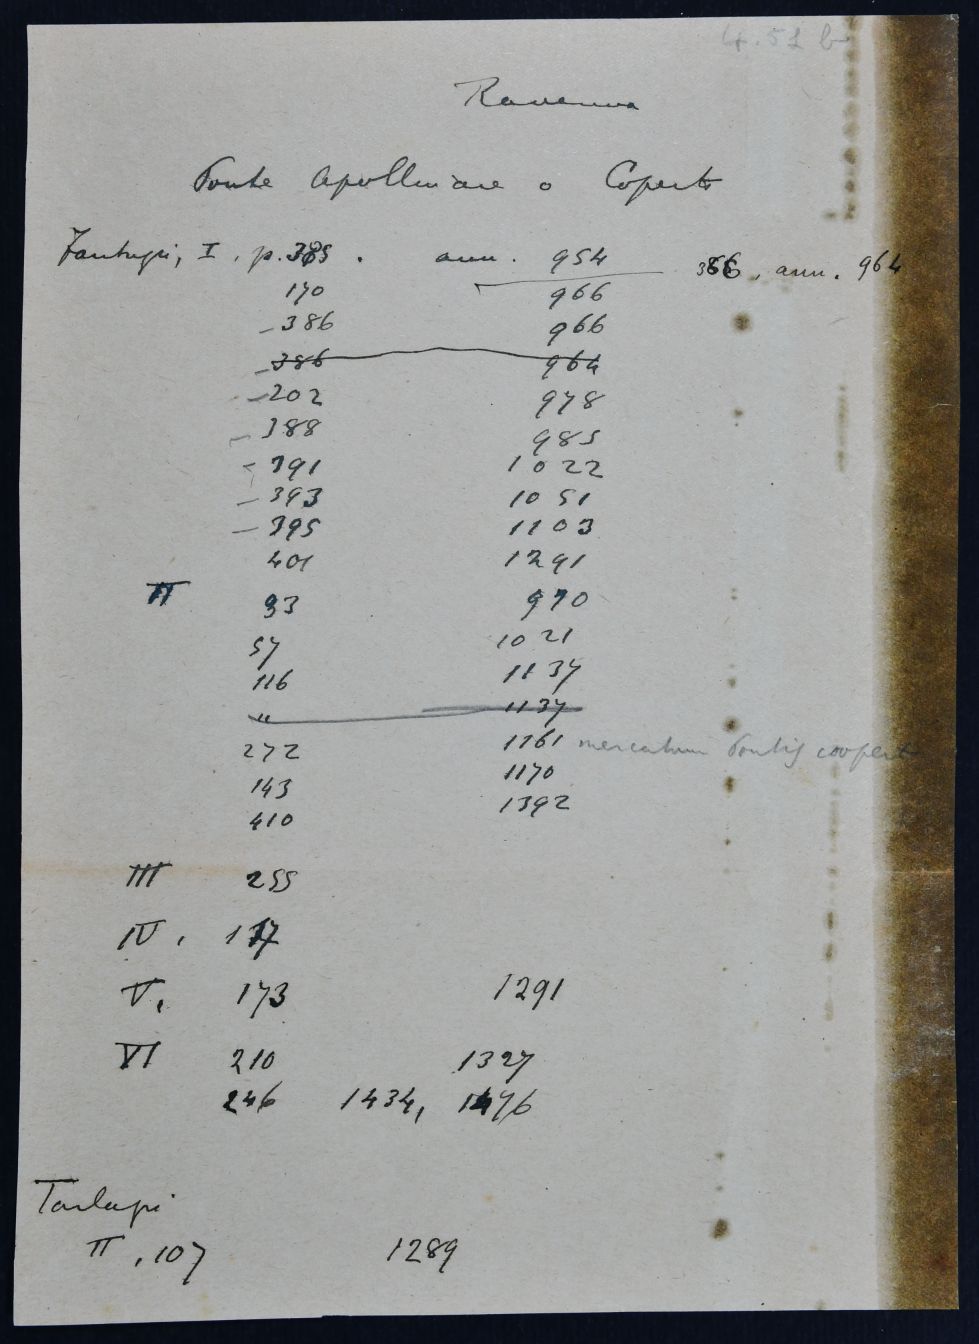 4.51 b
Ravenna
Ponte Apollinare o Coperto
Fantuzzi, I, p. 385. ann. 954 366, ann. 964
170 966
- 386 966
- 386 964
- 202 978
- 388 985
- 391 1022
- 393 1051
- 395 1103
401 1291
II 93 970
57 1021
116 1137
" 1137
272 1161 mercatum Pontis cooperti
143 1170
410 1392
III 255
IV, 117
V, 173 1291
VI 210 1327
246 1434, 1476
Tarlazzi
II, 107 1289